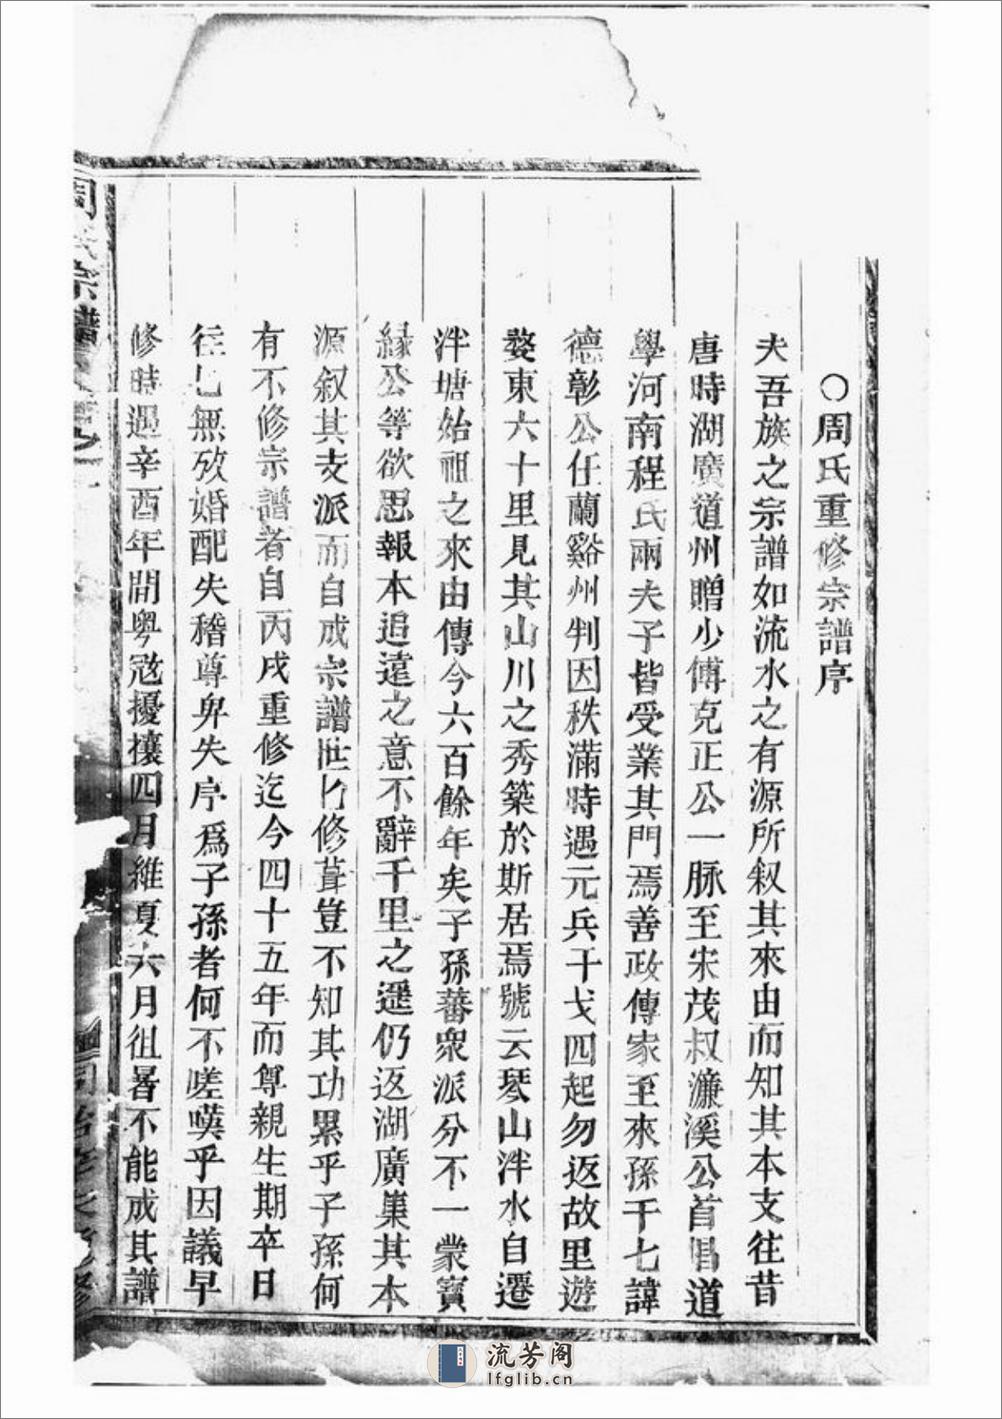 ○周氏重修宗譜序
夫吾族之宗譜如流水之有源所叙其來由而知其本支往昔
唐時湖廣道州贈少傅克正公一脉至宋茂叔濂溪公首倡道
學河南程氏兩夫子皆受業其門焉善政傳家至來孫千七諱
德彰公任蘭谿州判因秩滿時遇元兵干戈四起勿返故里遊
婺東六十里見其山川之秀築於斯居焉號云琴山泮水自遷
泮塘始祖之來由傳今六百餘年矣子孫蕃衆派分不一蒙寳
緣公等欲思報本追遠之意不辭千里之遥仍返湖廣巢其本
源叙其支派而自成宗譜世〻修葺豈不知其功累乎子孫何
有不修宗譜者自丙戌重修迄今四十五年而尊親生期卒日
徃〻無攷婚配失稽尊卑失序為子孫者何不嗟嘆乎因議早
修時遇辛酉年間粤寇擾攘四月維夏六月徂暑不能成其譜
周氏宗譜
流芳阁
lfglib.cn